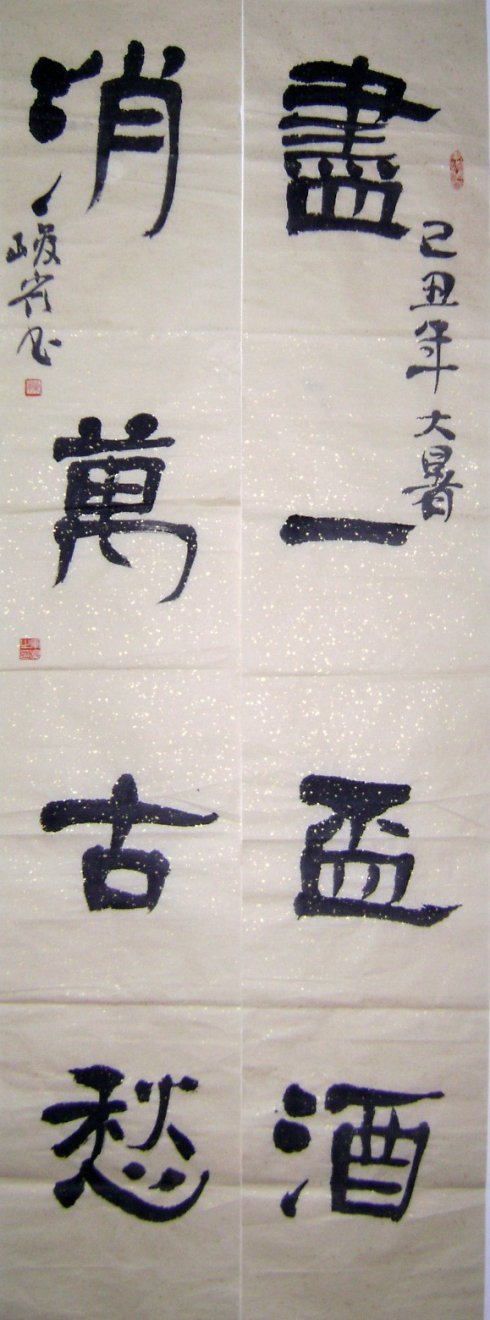 盡一盃酒
己丑年大暑
消萬古愁
峻岩书